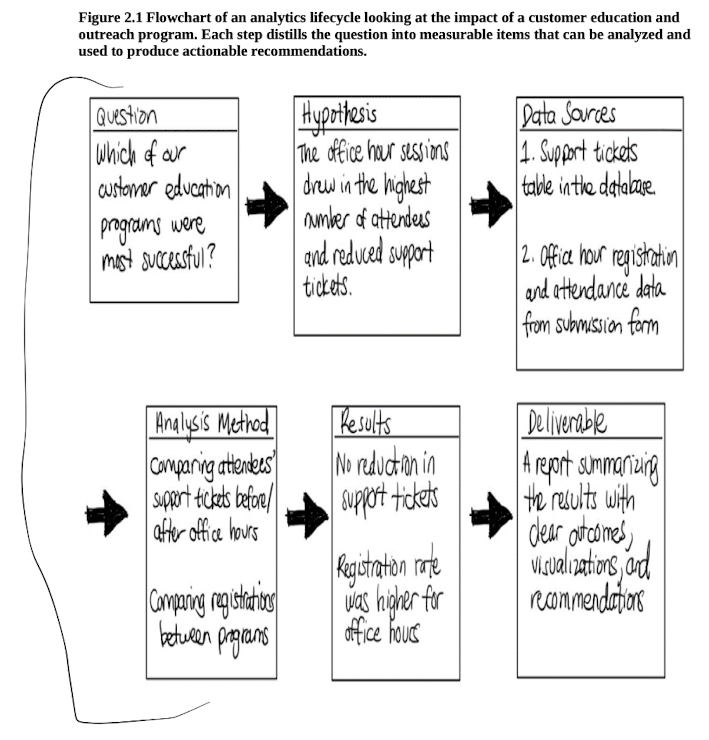 Figure 2.1 Flowchart of an analytics lifecycle looking at the impact of a customer education and
outreach program. Each step distills the question into measurable items that can be analyzed and
used to produce actionable recommendations.
Question
Which of our
customer education
programs were
most successful?
Hypothesis
The office hour sessions
drew in the highest
number of attendees
and reduced support
tickets.
Data Sources
1. Support tickets
table in the database.
2. Office hour registration
and attendance data
from submission form
Analysis Method
Comparing attendees'
support tickets before/
after office hours
Comparing registrations
between programs
Results
No reduction in
support tickets
Registration rate
was higher for
office hours
Deliverable
A report summarizing
the results with
clear outcomes,
visualizations, and
recommendations